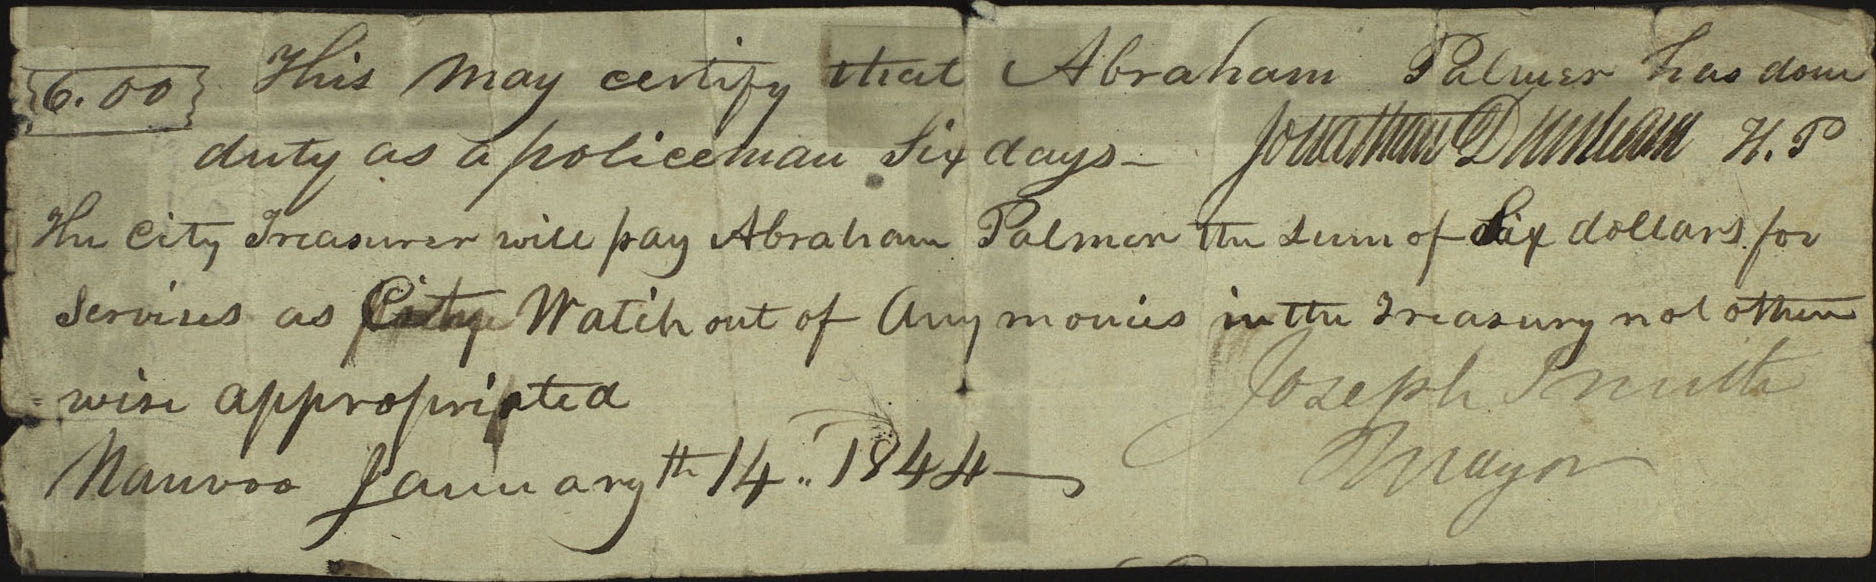 6.00 This may certify that Abraham Palmer has done
duty as a policeman Six days — Jonathan Dunham H. P
The City Treasurer will pay Abraham Palmer the sum of Six dollars for
Servises as City Watch out of Any monies in the Treasury not other
wise appropriated
Joseph Smith
Nauvoo January th 14.. 1844 —
Mayor